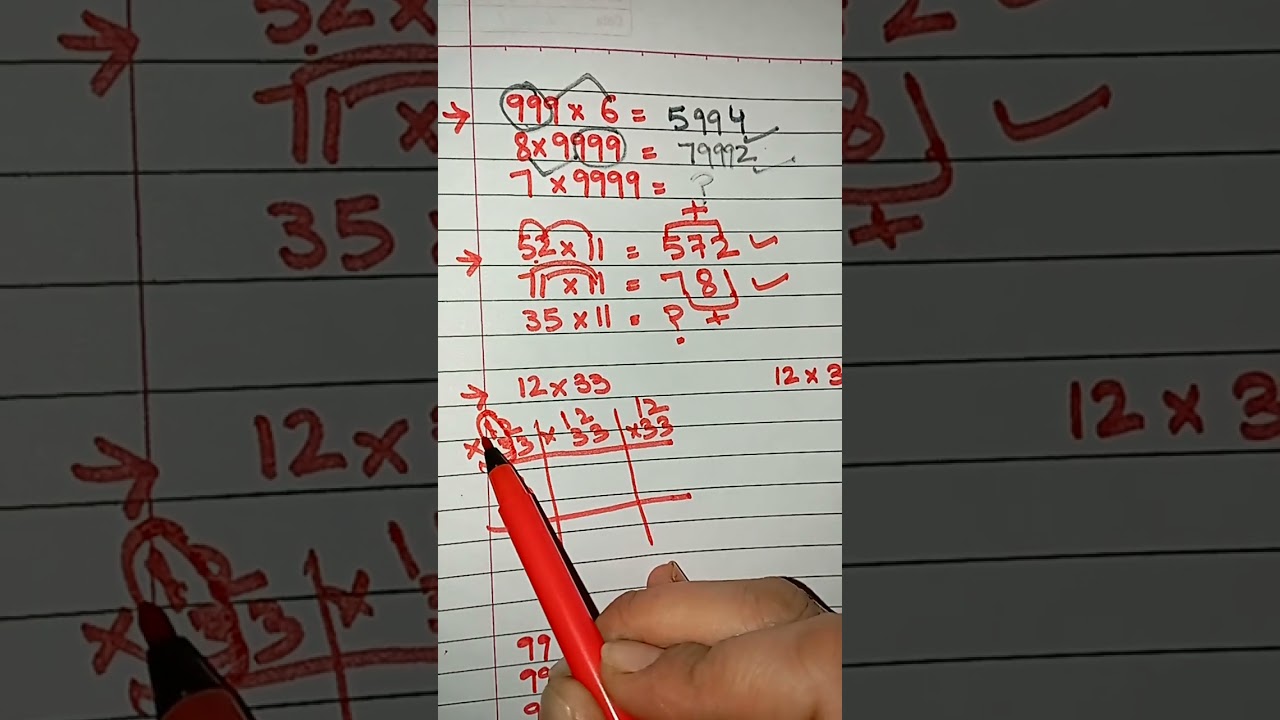 999 × 6 = 5994
8 × 9999 = 79992
7 × 9999 = ?
+
52 × 11 = 572
71 × 11 = 781
35 × 11 = ? +
12 × 33 12 × 3
12 12 12
× 33 × 33 × 33
99
99
9